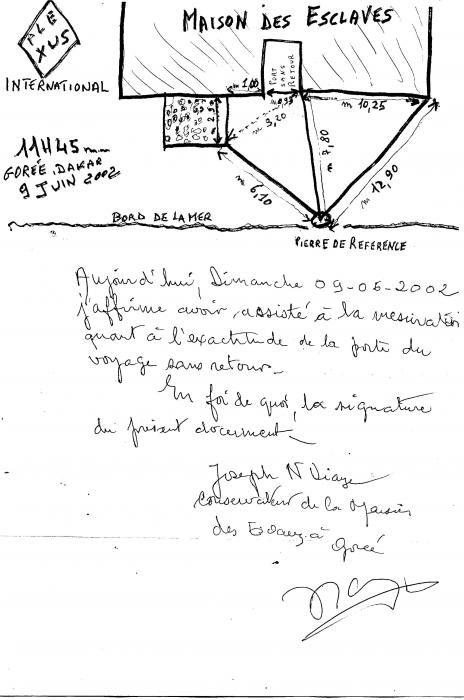 PLEXUS
INTERNATIONAL
MAISON DES ESCLAVES
PORT SANS RETOUR
m 1,00
m 0,93
m 10,25
2,5
m 3,20
m 7,80
m 6,10
m 12,90
11H45mm
GORÉE, DAKAR
9 JUIN 2002
BORD DE LA MER
PIERRE DE REFERENCE
Aujourd'hui, Dimanche 09-06-2002
j'affirme avoir assisté à la mesuration
quant à l'exactitude de la porte du
voyage sans retour_
En foi de quoi, la signature
du présent document_
Joseph N'Diaye
Conservateur de la Maison
des Esclaves à
Gorée